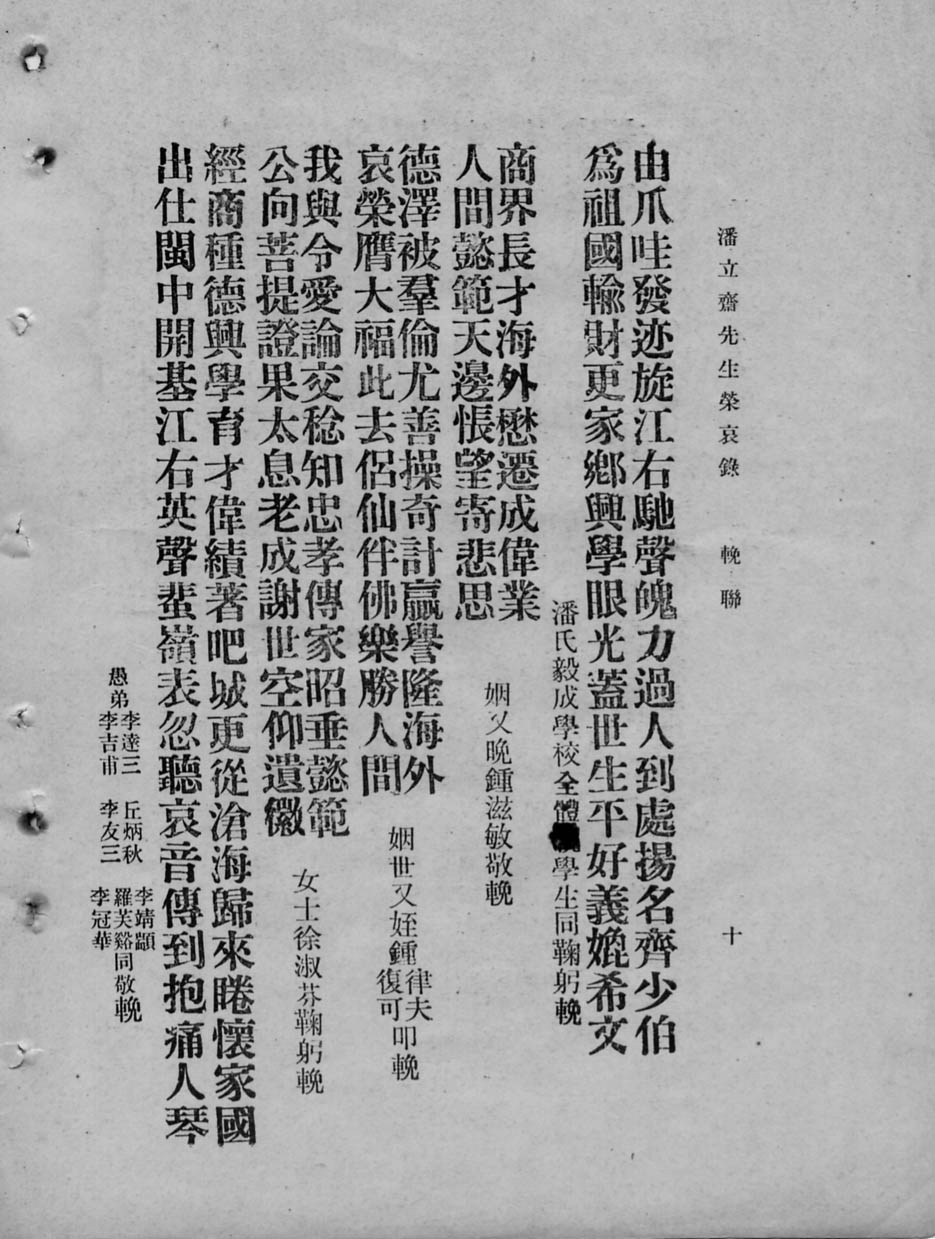 潘立齋先生榮哀錄 輓聯 十
由爪哇發迹旋江右馳聲魄力過人到處揚名齊少伯
爲祖國輸財更家鄉興學眼光蓋世生平好義媲希文
潘氏毅成學校全體學生同鞠躬輓
商界長才海外懋遷成偉業
人間懿範天邊悵望寄悲思
姻又晚鍾滋敏敬輓
德澤被羣倫尤善操奇計贏譽隆海外
哀榮膺大福此去侶仙伴佛樂勝人間
姻世又姪鍾律夫復可叩輓
我與令愛論交稔知忠孝傳家昭垂懿範
公向菩提證果太息老成謝世空仰遺徽
女士徐淑芬鞠躬輓
經商種德興學育才偉績著吧城更從滄海歸來睠懷家國
出仕閩中開基江右英聲蜚嶺表忽聽哀音傳到抱痛人琴
愚弟李達三 李吉甫 丘炳秋 李友三 李靖顓 羅芙谿 李冠華 同敬輓